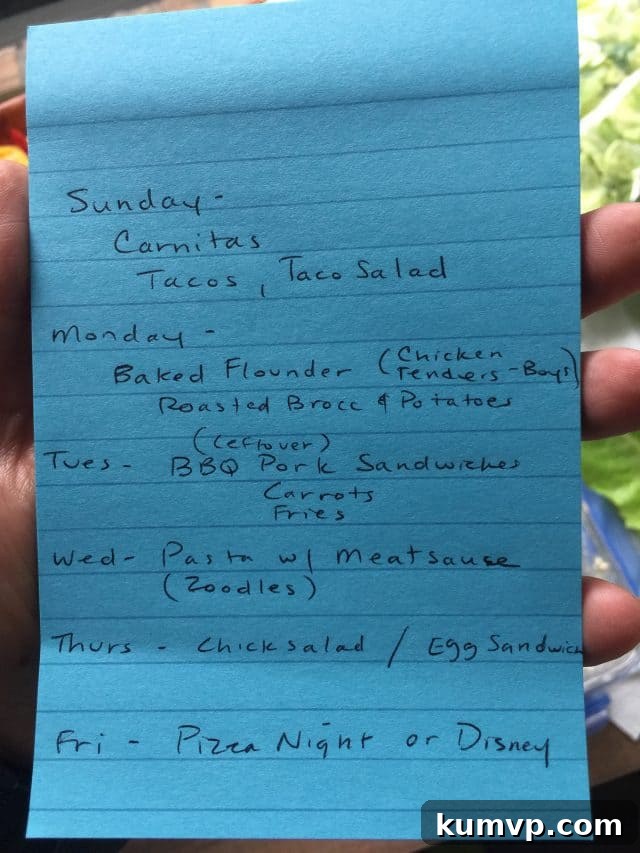 Sunday -
Carnitas
Tacos, Taco Salad
Monday -
Baked Flounder (Chicken Tenders - Boys)
Roasted Brocc & Potatoes
(Leftover)
Tues - BBQ Pork Sandwiches
Carrots
Fries
Wed - Pasta w/ Meatsause
(Zoodles)
Thurs - Chick salad / Egg Sandwich
Fri - Pizza Night or Disney
kumvp.com